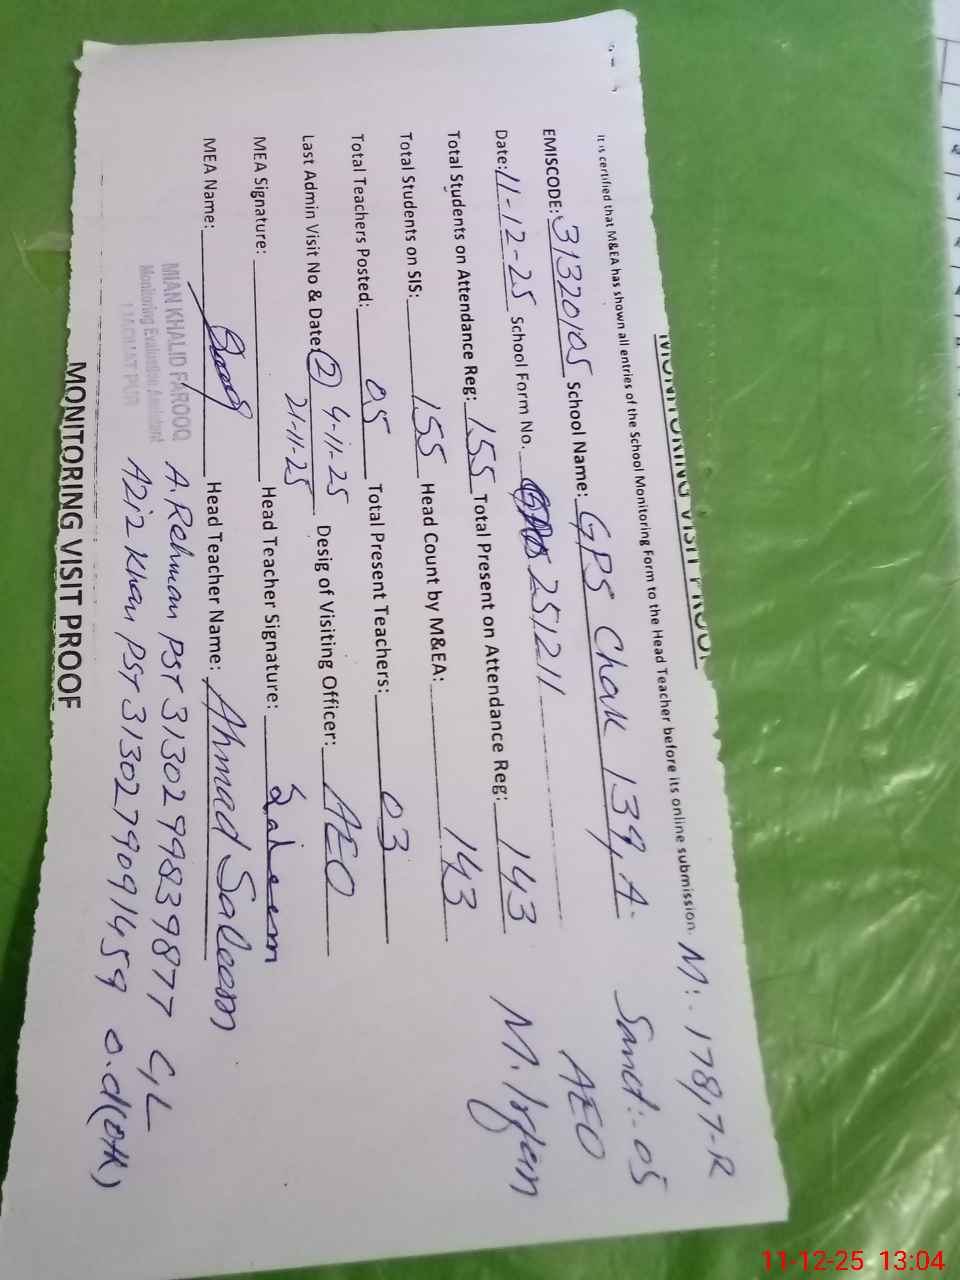 MONITORING VISIT PROOF
It is certified that M&EA has shown all entries of the School Monitoring Form to the Head Teacher before its online submission. M:. 178,7-R
EMISCODE: 31320105 School Name: GPS Chak 139,A. Sanct:- 05
AEO
Date: 11-12-25 School Form No. 251211 M. Irfan
Total Students on Attendance Reg: 155 Total Present on Attendance Reg: 143
Total Students on SIS: 155 Head Count by M&EA: 143
Total Teachers Posted: 05 Total Present Teachers: 03
Last Admin Visit No & Date: (2) 4-11-25 Desig of Visiting Officer: AEO
21-11-25
MEA Signature: Head Teacher Signature: Saleem
MEA Name: Head Teacher Name: Ahmad Saleem
MIAN KHALID FAROOQ
Monitoring Evaluation Assistant
LIAQUAT PUR
A. Rehman PST 3130299839877 C/L
Aziz Khan PST 3130279091459 o.d(oth)
MONITORING VISIT PROOF
11-12-25 13:04